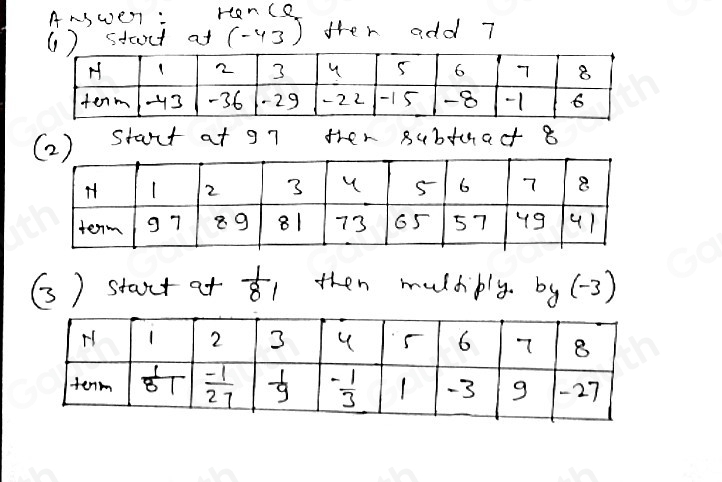 Answer: Hence
(1) start at (-43) then add 7
N 1 2 3 4 5 6 7 8
term -43 -36 -29 -22 -15 -8 -1 6
(2) start at 97 then subtract 8
N 1 2 3 4 5 6 7 8
term 97 89 81 73 65 57 49 41
(3) start at 1/81 then multiply. by (-3)
N 1 2 3 4 5 6 7 8
term 1/81 -1/27 1/9 -1/3 1 -3 9 -27